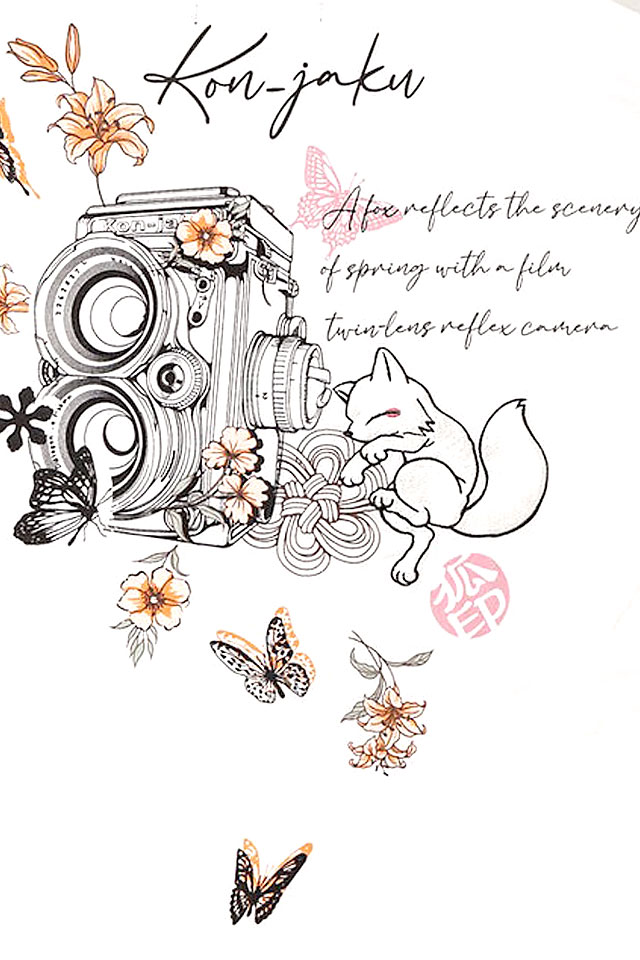 Kon-jaku
kon-ja
A fox reflects the scenery
of spring with a film
twin-lens reflex camera